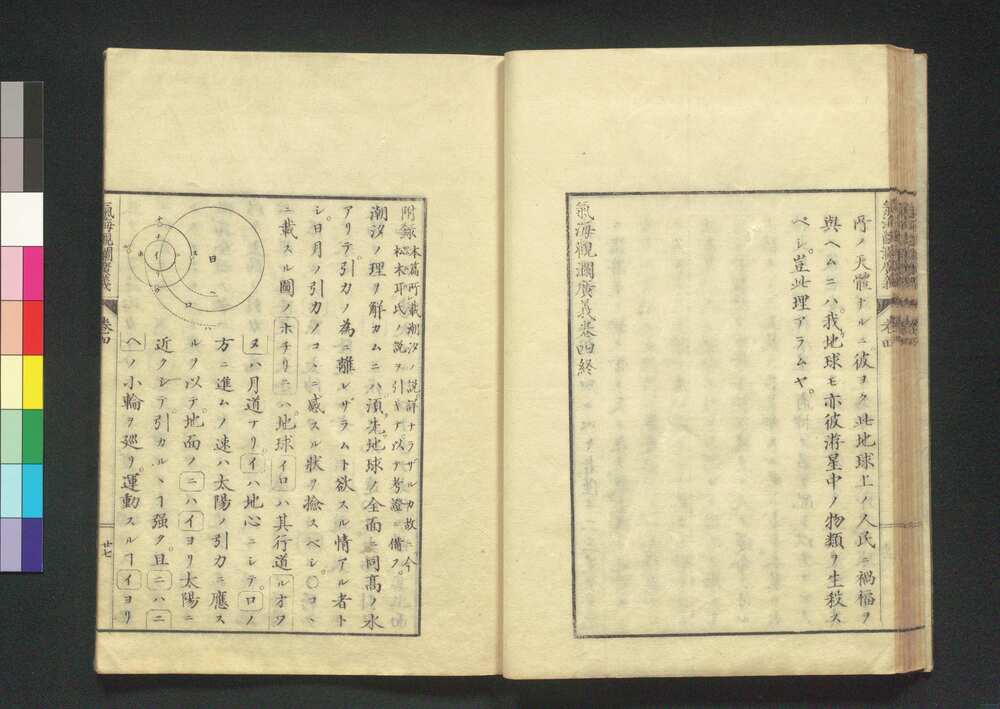 氣海觀瀾廣義 卷四
斤ノ天體ナルニ彼ヲク此地球上ノ人民ニ禍福ヲ
與ヘムニハ我地球モ亦彼游星中ノ物類ヲ生殺ス
ベシ豈此理アラムヤ。
氣海觀瀾廣義卷四終
附錄 本篇所載潮汐ノ説詳ナラザルカ故ニ今
松木耳氏ノ説ヲ引キテ以テ考證ニ備フ
潮汐ノ理ヲ解カムニハ須先地球ノ全面ニ同高ノ水
アリテ引力ノ為ニ離レザラムト欲スル情アル者ト
シ。日月ノ引力ノコヽニ感スル狀ヲ撿スベシ○コヽ
ニ載スル圖ノホチリニハ地球イロハ其行道ルオワ
ヌハ月道ナリ。イハ地心ニシテ。ロノ
方ニ進ムノ速ハ太陽ノ引力ニ應ス
ルヲ以テ。地面ノニハイヨリ太陽ニ
近クシテ引カルヽヿ强ク。且ニハニ
ヘノ小輪ヲ巡リ。運動スルヿイヨリ
日
イ
ロ
ハ
ニ
氣海觀瀾廣義 卷四 廿七